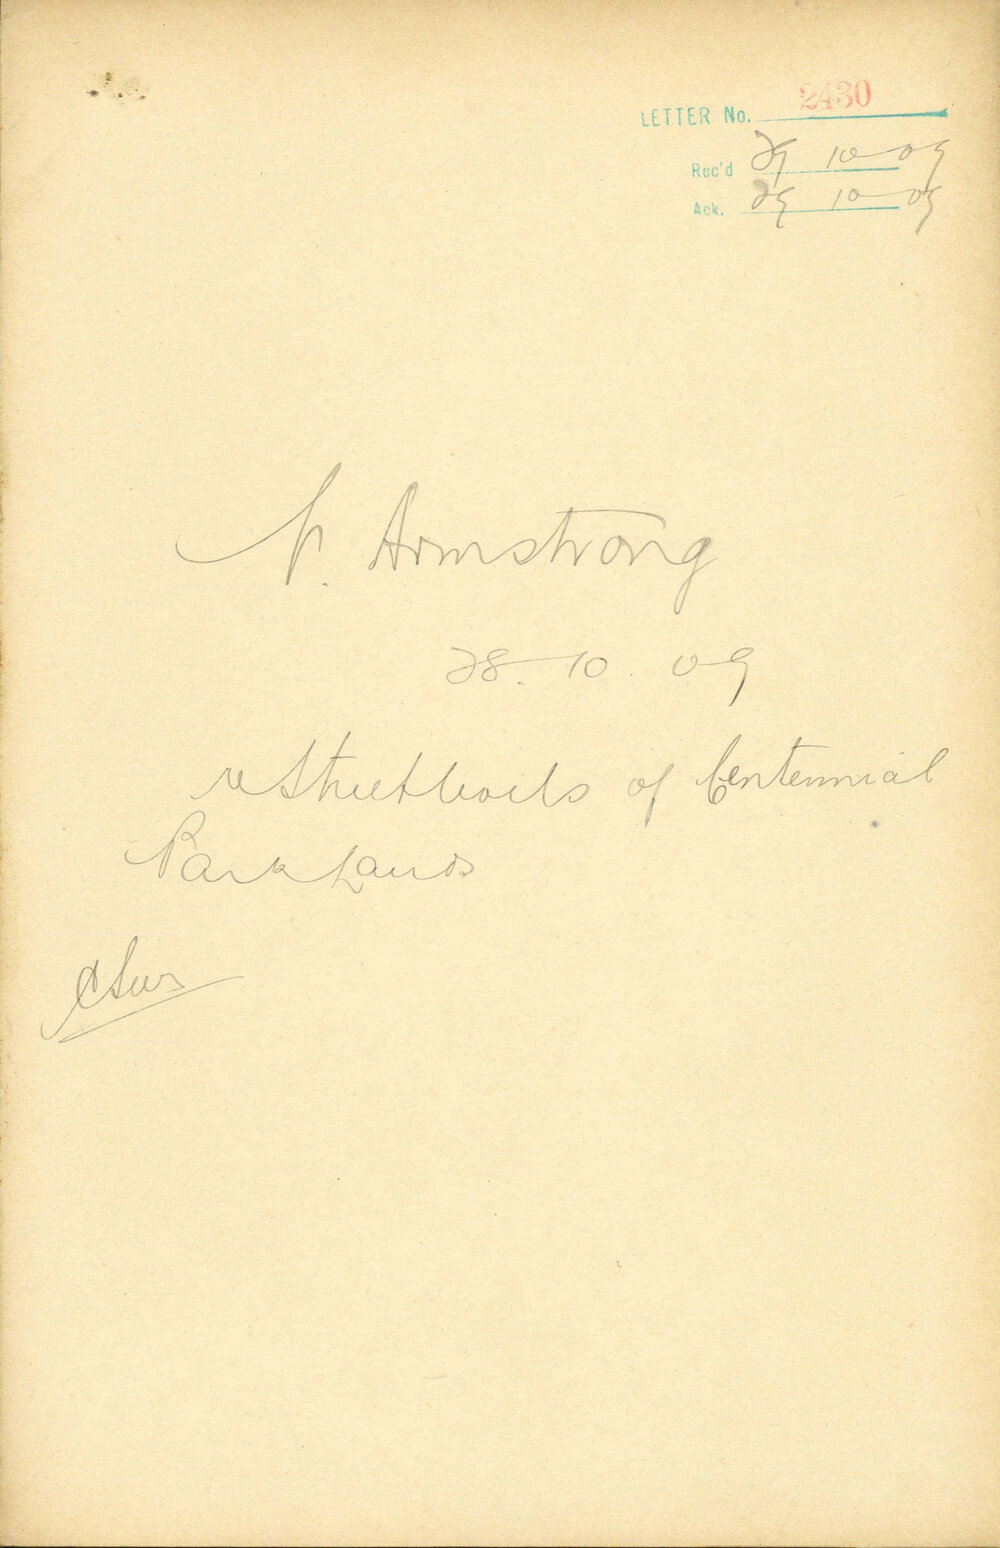 LETTER No. 2430
Rec'd 29 10 09
Ack. 29 10 09
Armstrong
28. 10. 09
re Street levels of Centennial
Park Lands